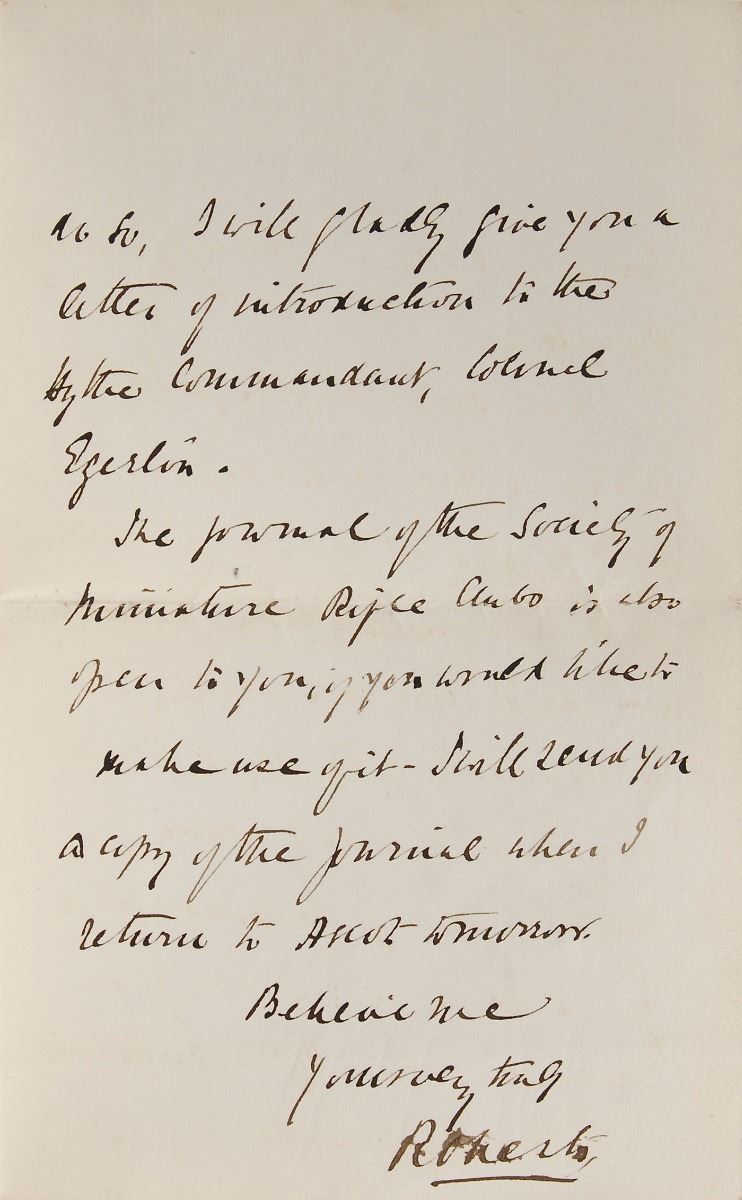 do so, I will gladly give you a
letter of introduction to the
Hythe Commandant, Colonel
Egerton.
The Journal of the Society of
Miniature Rifle Clubs is also
open to you, if you would like to
make use of it - I will send you
a copy of the Journal when I
return to Ascot tomorrow.
Believe me
Yours very truly
Roberts,